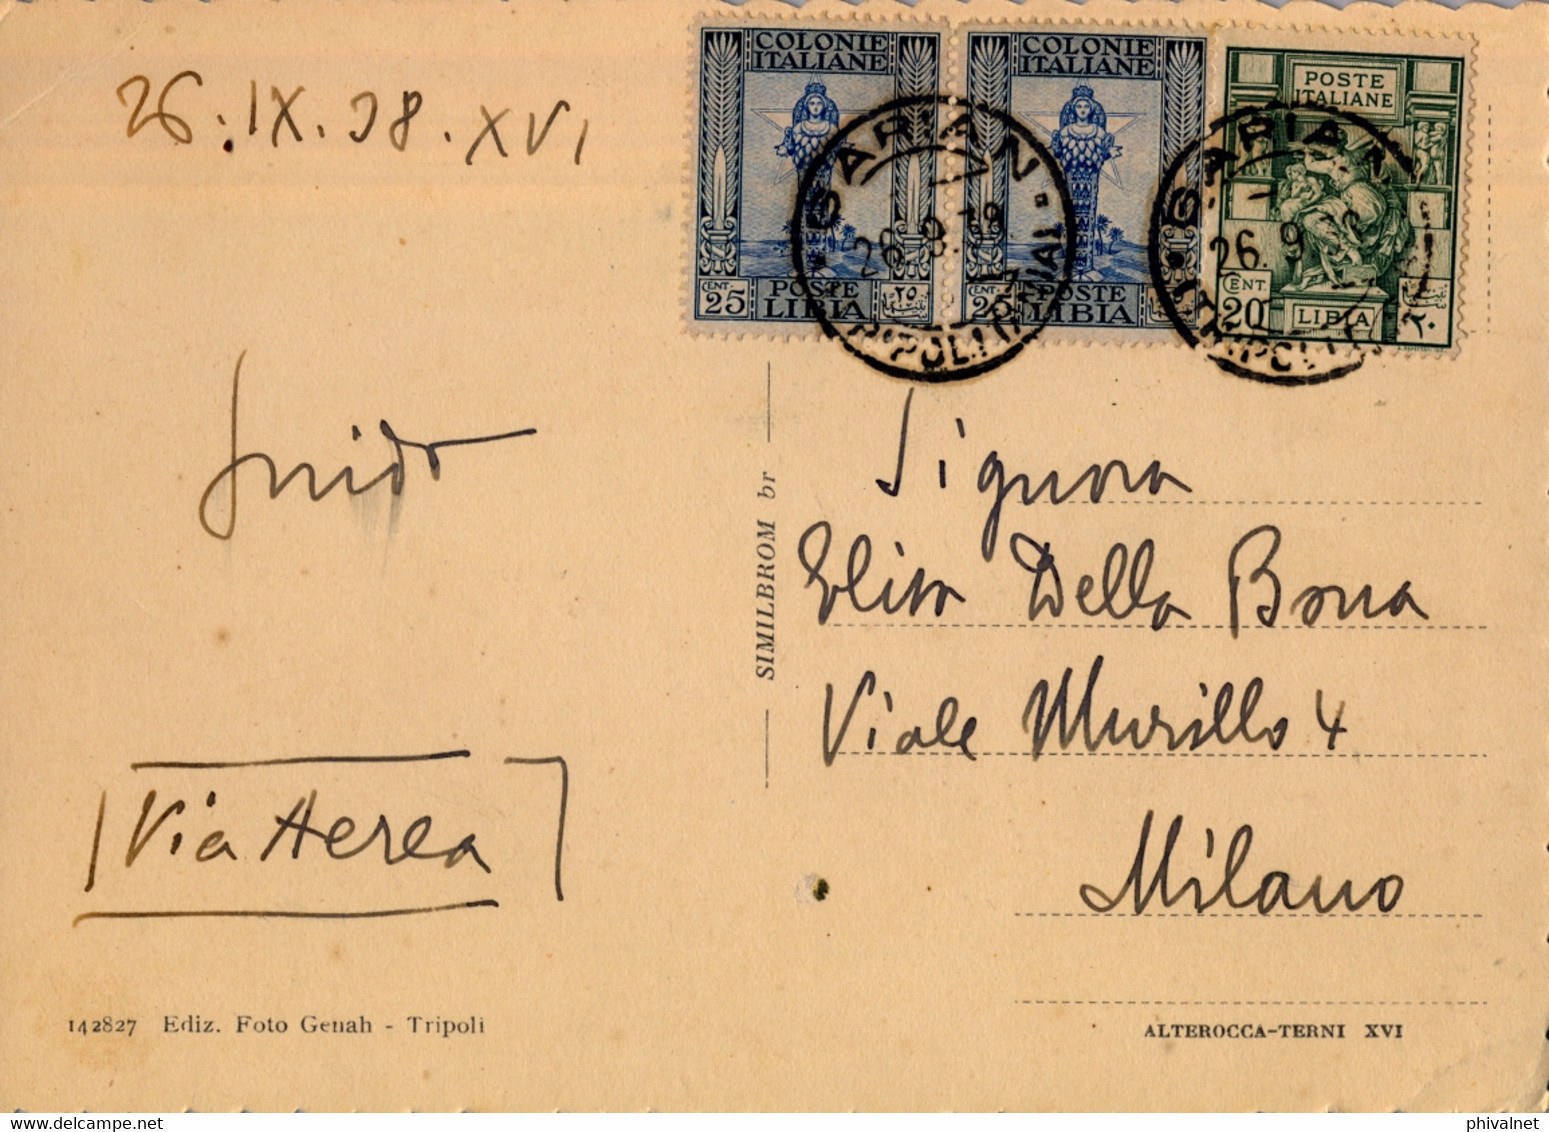 26.IX.38.XVI
COLONIE ITALIANE
CENT. 25 POSTE LIBIA ٢٥
COLONIE ITALIANE
CENT. 25 POSTE LIBIA
POSTE ITALIANE
CENT. 20 LIBIA ٢٠
GARIAN
26.9.38
17
(TRIPOLITANIA)
GARIAN
26.9.38
Guido
Via Aerea
142827 Ediz. Foto Genah - Tripoli
SIMILBROM br
Signora
Elisa Della Bona
Viale Murillo 4
Milano
ALTEROCCA-TERNI XVI
phivalnet